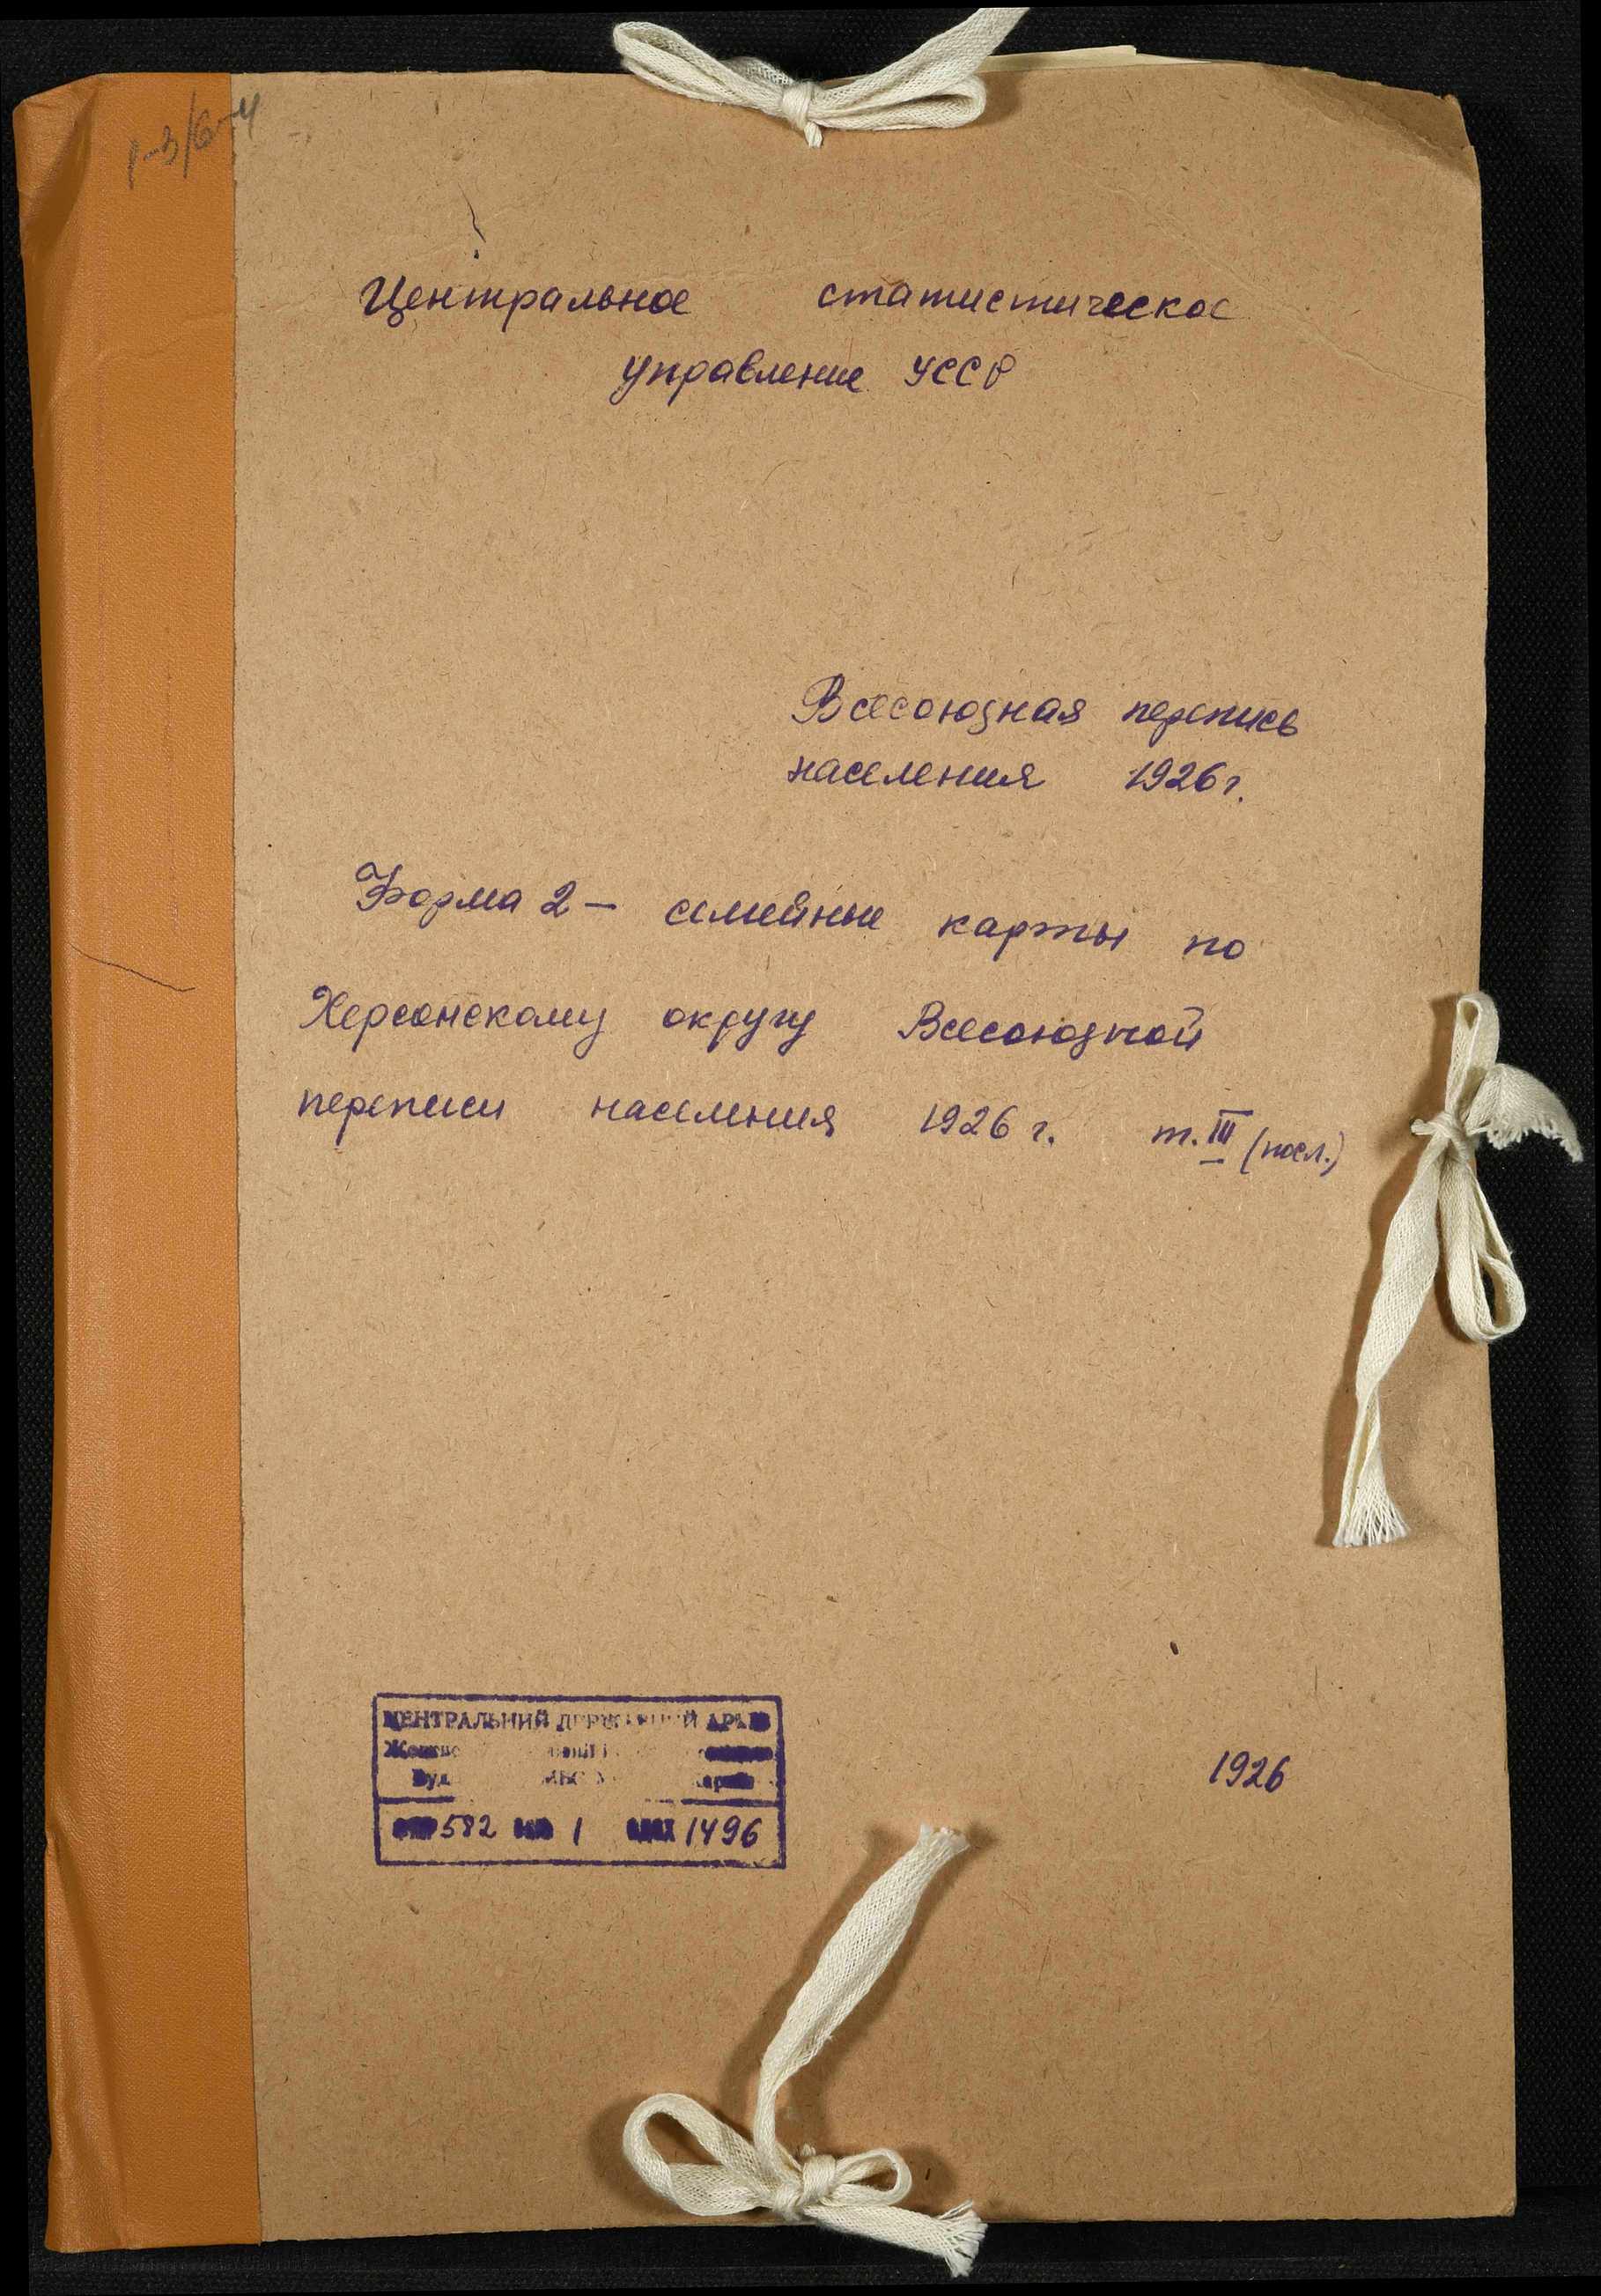 Центральное статистическое
управление УССР
Всесоюзная перепись
населения 1926г.
Форма 2 – семейные карты по
Херсонскому округу Всесоюзной
переписи населения 1926 г. т. III (посл.)
1926
ЦЕНТРАЛЬНИЙ ДЕРЖАВНИЙ АРХІВ
582 1 1496